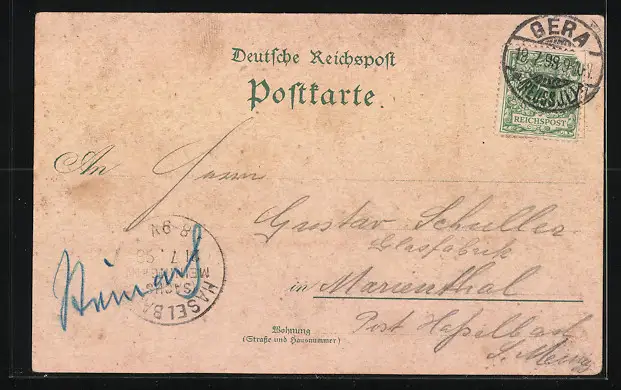 Deutsche Reichspost
Postkarte
GERA
18.7.98.
REICHSPOST
An Herrn
Gustav Schuller
Glasfabrik
in Marienthal
Post Haselbach
S. Mein
8-9V
7.98
HASELBA
Wohnung
(Straße und Hausnummer)